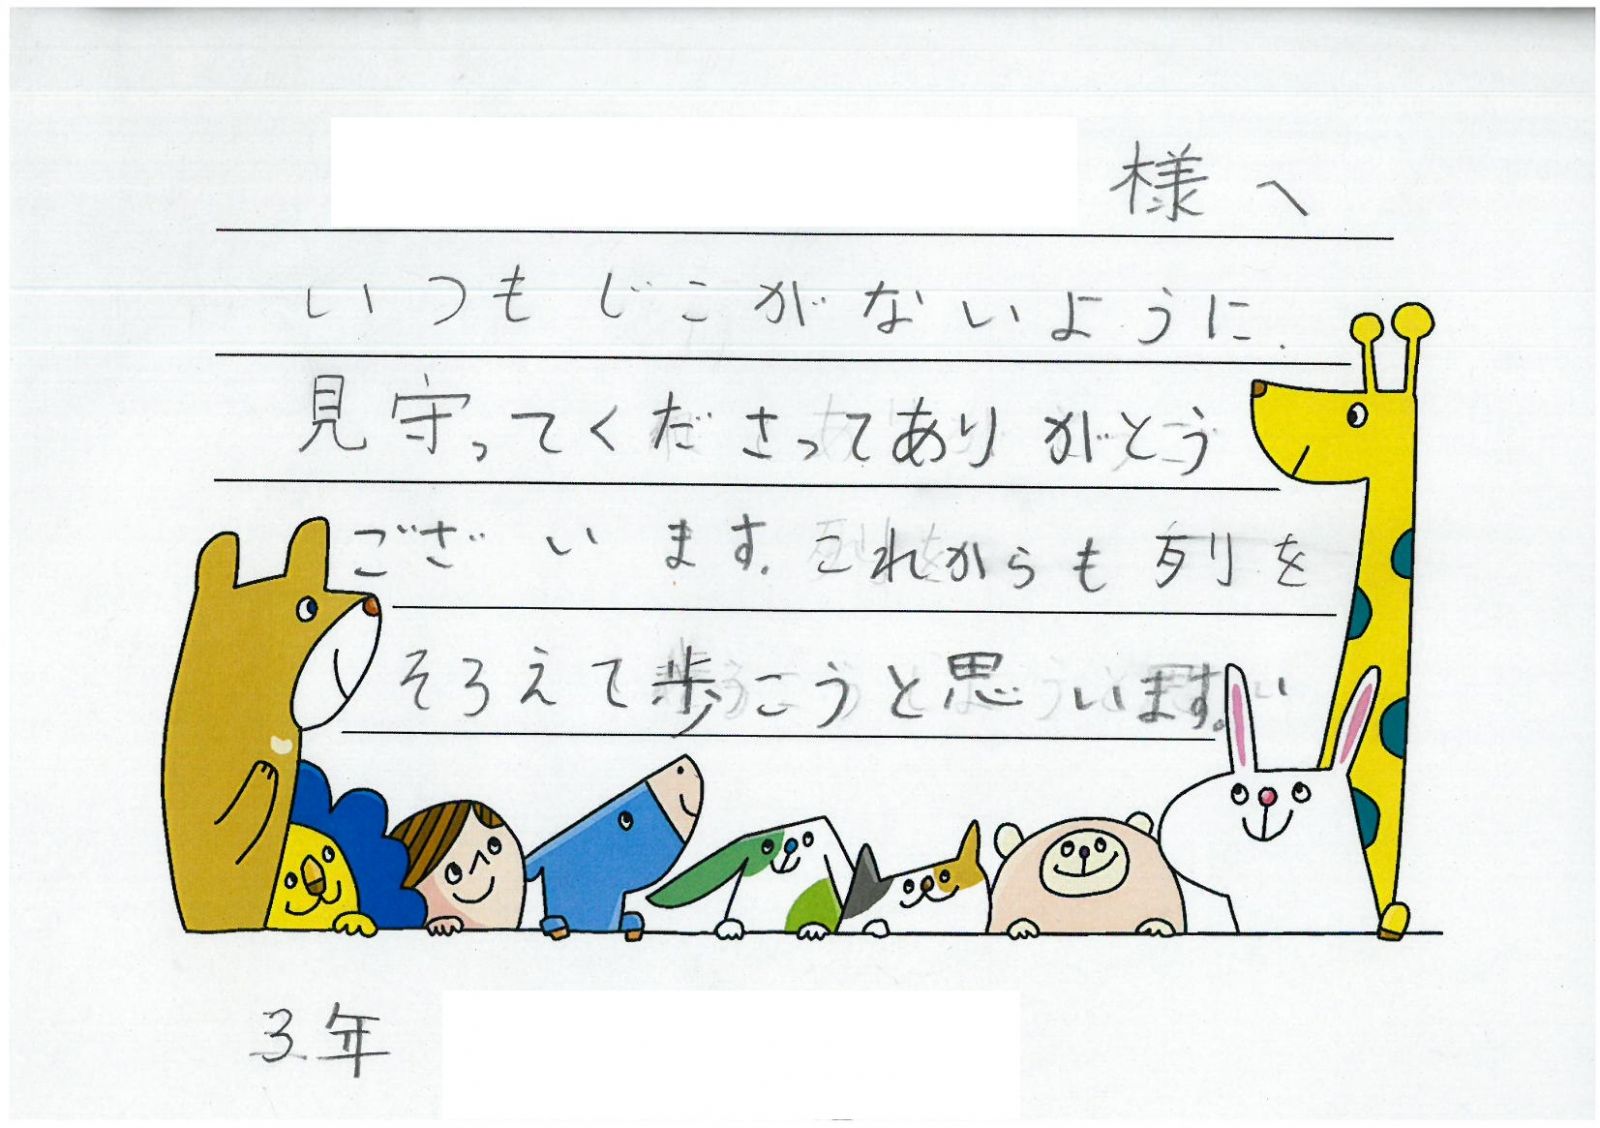 様へ
いつもじこがないように
見守ってくださってありがとう
ございます。これからも列を
そろえて歩こうと思います。
3年